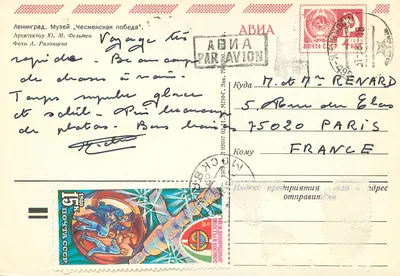 Ленинград. Музей „Чесменская победа".
Архитектор Ю. М. Фельтен
Фото А. Рязанцева
АВИА
Voyage très
rapide. Beaucoup
de choses à voir.
Temps superbe glace
et soleil. Pris beaucoup
de photos. Bons baisers
АВИА
PAR AVION
ПОЧТА
СССР
4
Куда
M. et Mme RENARD
5, Rue du
75020 PARIS
Кому
FRANCE
МОСКВА
Индекс предприятия
отправителя
15к
1980
ПОЧТА СССР
МЕЖДУНАРОДНЫЕ
ПОЛЕТЫ В КОСМОС